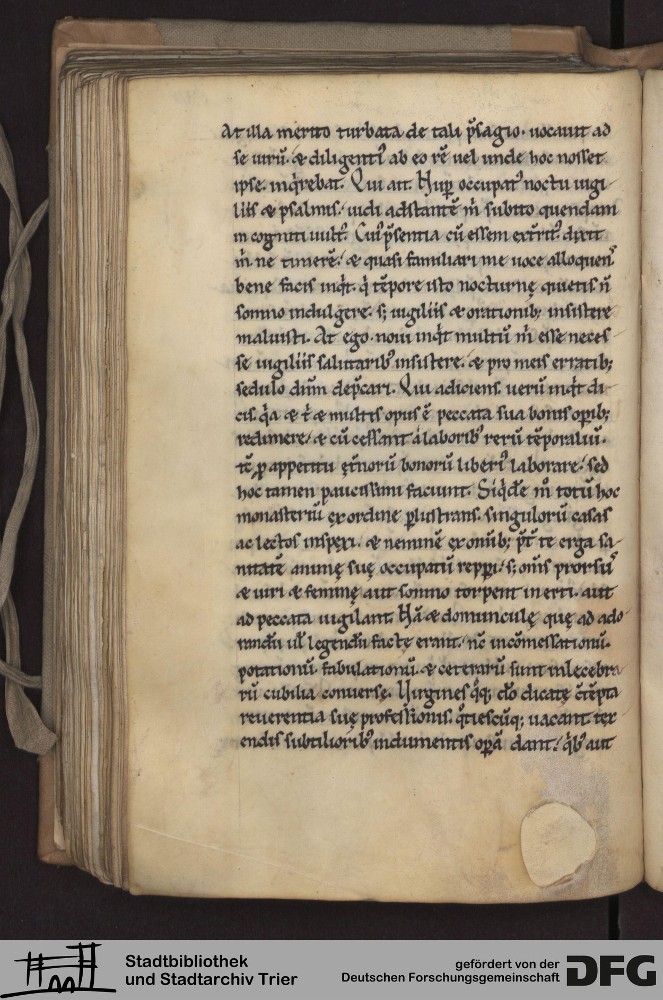 At illa merito turbata de tali p̄sagio. uocauit ad
se uirū. & diligentiᵒ ab eo rē uel unde hoc nosset
ipse. inq̇rebat. Qui ait. Nup̱ occupatᵒ noctu uigi
liis & psalmis. uidi adstantē m̄ subito quendam
incogniti uultᵒ. Cuiᵒ p̄sentia cū essem ext̄ritᵒ. dixit
m̄ ne timerē. & quasi familiari me uoce alloquenᵒ
bene facis inq̇t. q̇ tēpore isto nocturnę quietis n̄
somno indulgere. s; uigiliis & orationib; insistere
maluisti. At ego. noui inq̇t multū m̄ esse neces
se uigiliis salutaribᵒ insistere. & pro meis erratib;
sedulo dn̄m dep̄cari. Qui adiciens. uerū inq̇t di
cis. q̇a & t̄ & multis opus ē peccata sua bonis op̱ib;
redimere. & cū cessant a laboribᵒ rerū tēporaliū.
tc̄ p̱ appetitu et̄norū bonorū liberiᵒ laborare. sed
hoc tamen paucissimi faciunt. Siq̇dē m̄ totū hoc
monasteriū ex ordine p̱lustrans. singulorū casas
ac lectos inspexi. & neminē ex omīb; p̄t̄ te erga sa
nitatē animę suę occupatū repp̱i. s; om̄s prorsuᵒ
& uiri & feminę aut somno torpent inerti. aut
ad peccata uigilant. Nā & domunculę quę ad ado
randū ul̄ legendū factę erant. nc̄ in comessationū.
potationū. fabulationū. & ceterarū sunt inlecebra
rū cubilia conuersę. Uirgines q̊q; dō dicatę c̄tēpta
reuerentia suę professionis. q̊tiescūq; uacant tex
endis subtilioribᵒ indumentis op̱ā dant. q̇bᵒ aut
Stadtbibliothek
und Stadtarchiv Trier
gefördert von der
Deutschen Forschungsgemeinschaft
DFG